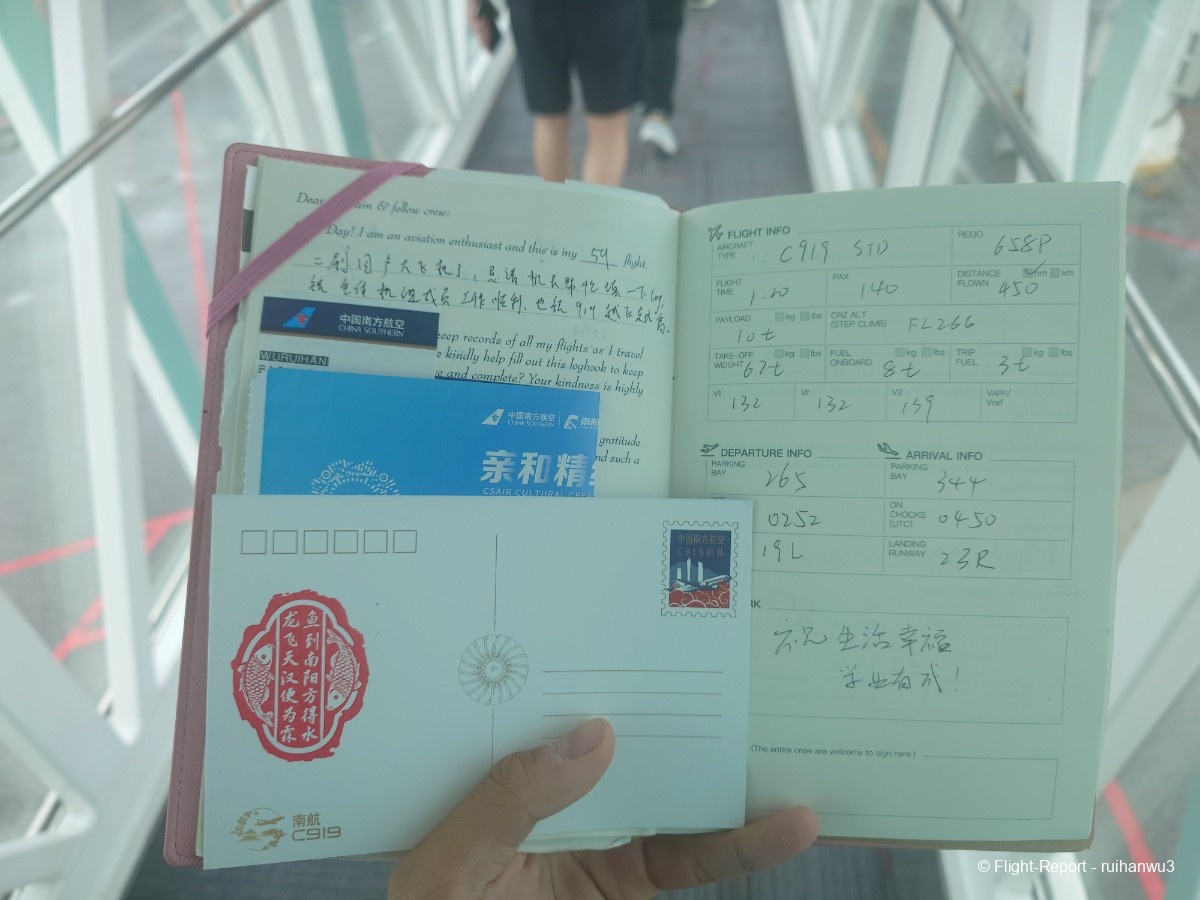 Dear & fellow crew:
Day! I am an aviation enthusiast and this is my 54 flight.
二刷国产大飞机了,恳请机长帮忙填一下log,
祝全体机组成员工作顺利,也祝919越飞越高。
中国南方航空
CHINA SOUTHERN
keep records of all my flights as I travel
WURUIHAN
kindly help fill out this logbook to keep
and complete? Your kindness is highly
gratitude
and such a
中国南方航空
CHINA SOUTHERN
亲和精
CSAIR CULTURAL
中国南方航空
C919机队
鱼到南阳方得水
龙飞天汉便为霖
南航
C919
FLIGHT INFO
AIRCRAFT TYPE C919 STD
REGO 658P
FLIGHT TIME 1.20
PAX 140
DISTANCE FLOWN nm km 450
PAYLOAD kg lbs 10t
CRZ ALT (STEP CLIMB) FL266
TAKE-OFF WEIGHT kg lbs 67t
FUEL ONBOARD kg lbs 8t
TRIP FUEL kg lbs 3t
V1 132
Vr 132
V2 139
VAPP/Vref
DEPARTURE INFO
ARRIVAL INFO
PARKING BAY 265
PARKING BAY 344
0252
ON CHOCKS (UTC) 0450
19L
LANDING RUNWAY 23R
RK
祝 生活幸福
学业有成!
(The entire crew are welcome to sign here.)
© Flight-Report - ruihanwu3